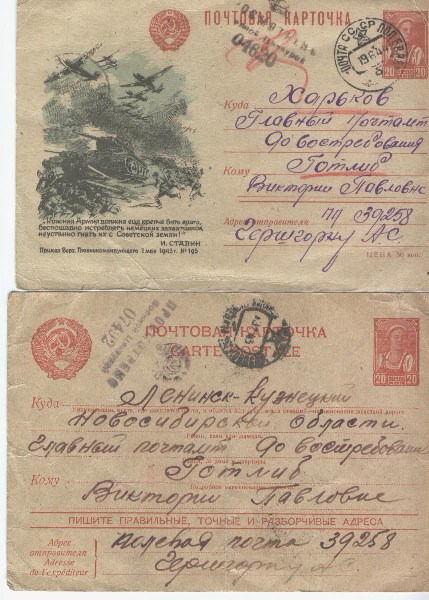 ПОЧТОВАЯ КАРТОЧКА
04620
ПОЧТА СССР ПОЛЕВАЯ
20
20
Куда Харьков
Главный Почтамт
До востребования
Кому Готлиб
Виктории Павловне
Адрес отправителя пп 39258
Гершгорин АС.
ЦЕНА 30 коп.
"Красная Армия должна еще крепче бить врага,
беспощадно истреблять немецких захватчиков,
неустанно гнать их с Советской земли!"
И. СТАЛИН
Приказ Верх. Главнокомандующего 1 мая 1943 г. № 195
ПОЧТОВАЯ КАРТОЧКА
CARTE POSTALE
ПРОСМОТРЕНО
07492
20
20
Куда Ленинск-Кузнецкий
Новосибирской области.
Главный почтамт До востребования
Кому Готлиб
Виктории Павловне
ПИШИТЕ ПРАВИЛЬНЫЕ, ТОЧНЫЕ И РАЗБОРЧИВЫЕ АДРЕСА
Адрес
отправителя
Adresse
de l'expéditeur
Полевая почта 39258
Гершгорин